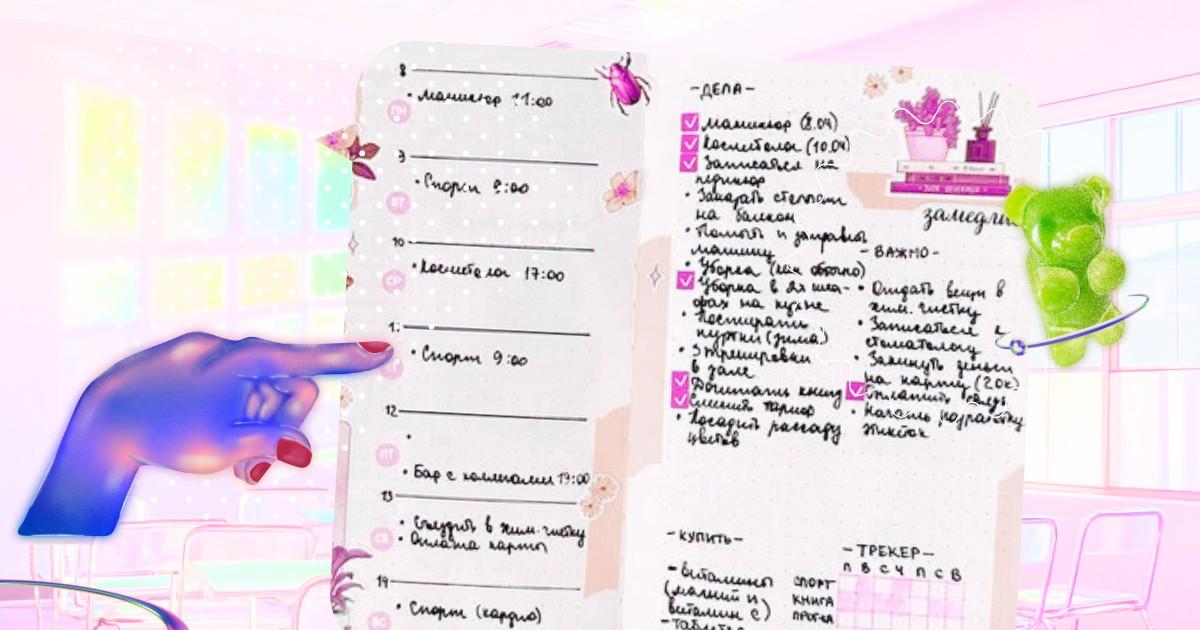 8
• Маникюр 11:00
ПН
9
• Спорт 9:00
ВТ
10
• Косметолог 17:00
СР
• Спорт 9:00
12
•
ПТ
• Бар с коллегами 19:00
13
• Съездить в хим. чистку
• Оплата карты
СБ
14
• Спорт (кардио)
ВС
-ДЕЛА-
маникюр (8.04)
косметолог (10.04)
Записаться на
педикюр
• Заказать стеллажи
на балкон
• Помыть и заправить
машину
• Уборка (как обычно)
Уборка в 2х шка-
фах на кухне
• Постирать
куртки (зима)
• 3 тренировки
в зале
Дочитать книгу
Сменить тариф
• Посадить рассаду
цветов
замедли
-ВАЖНО-
• Отдать вещи в
хим. чистку
• Записаться к
стоматологу
• Закинуть деньги
на карту (20к)
Оплатить
• Начать
тикток
-КУПИТЬ-
-Витамины
(магний и
витамин С)
-ТРЕКЕР-
П В С Ч П С В
СПОРТ
КНИГА